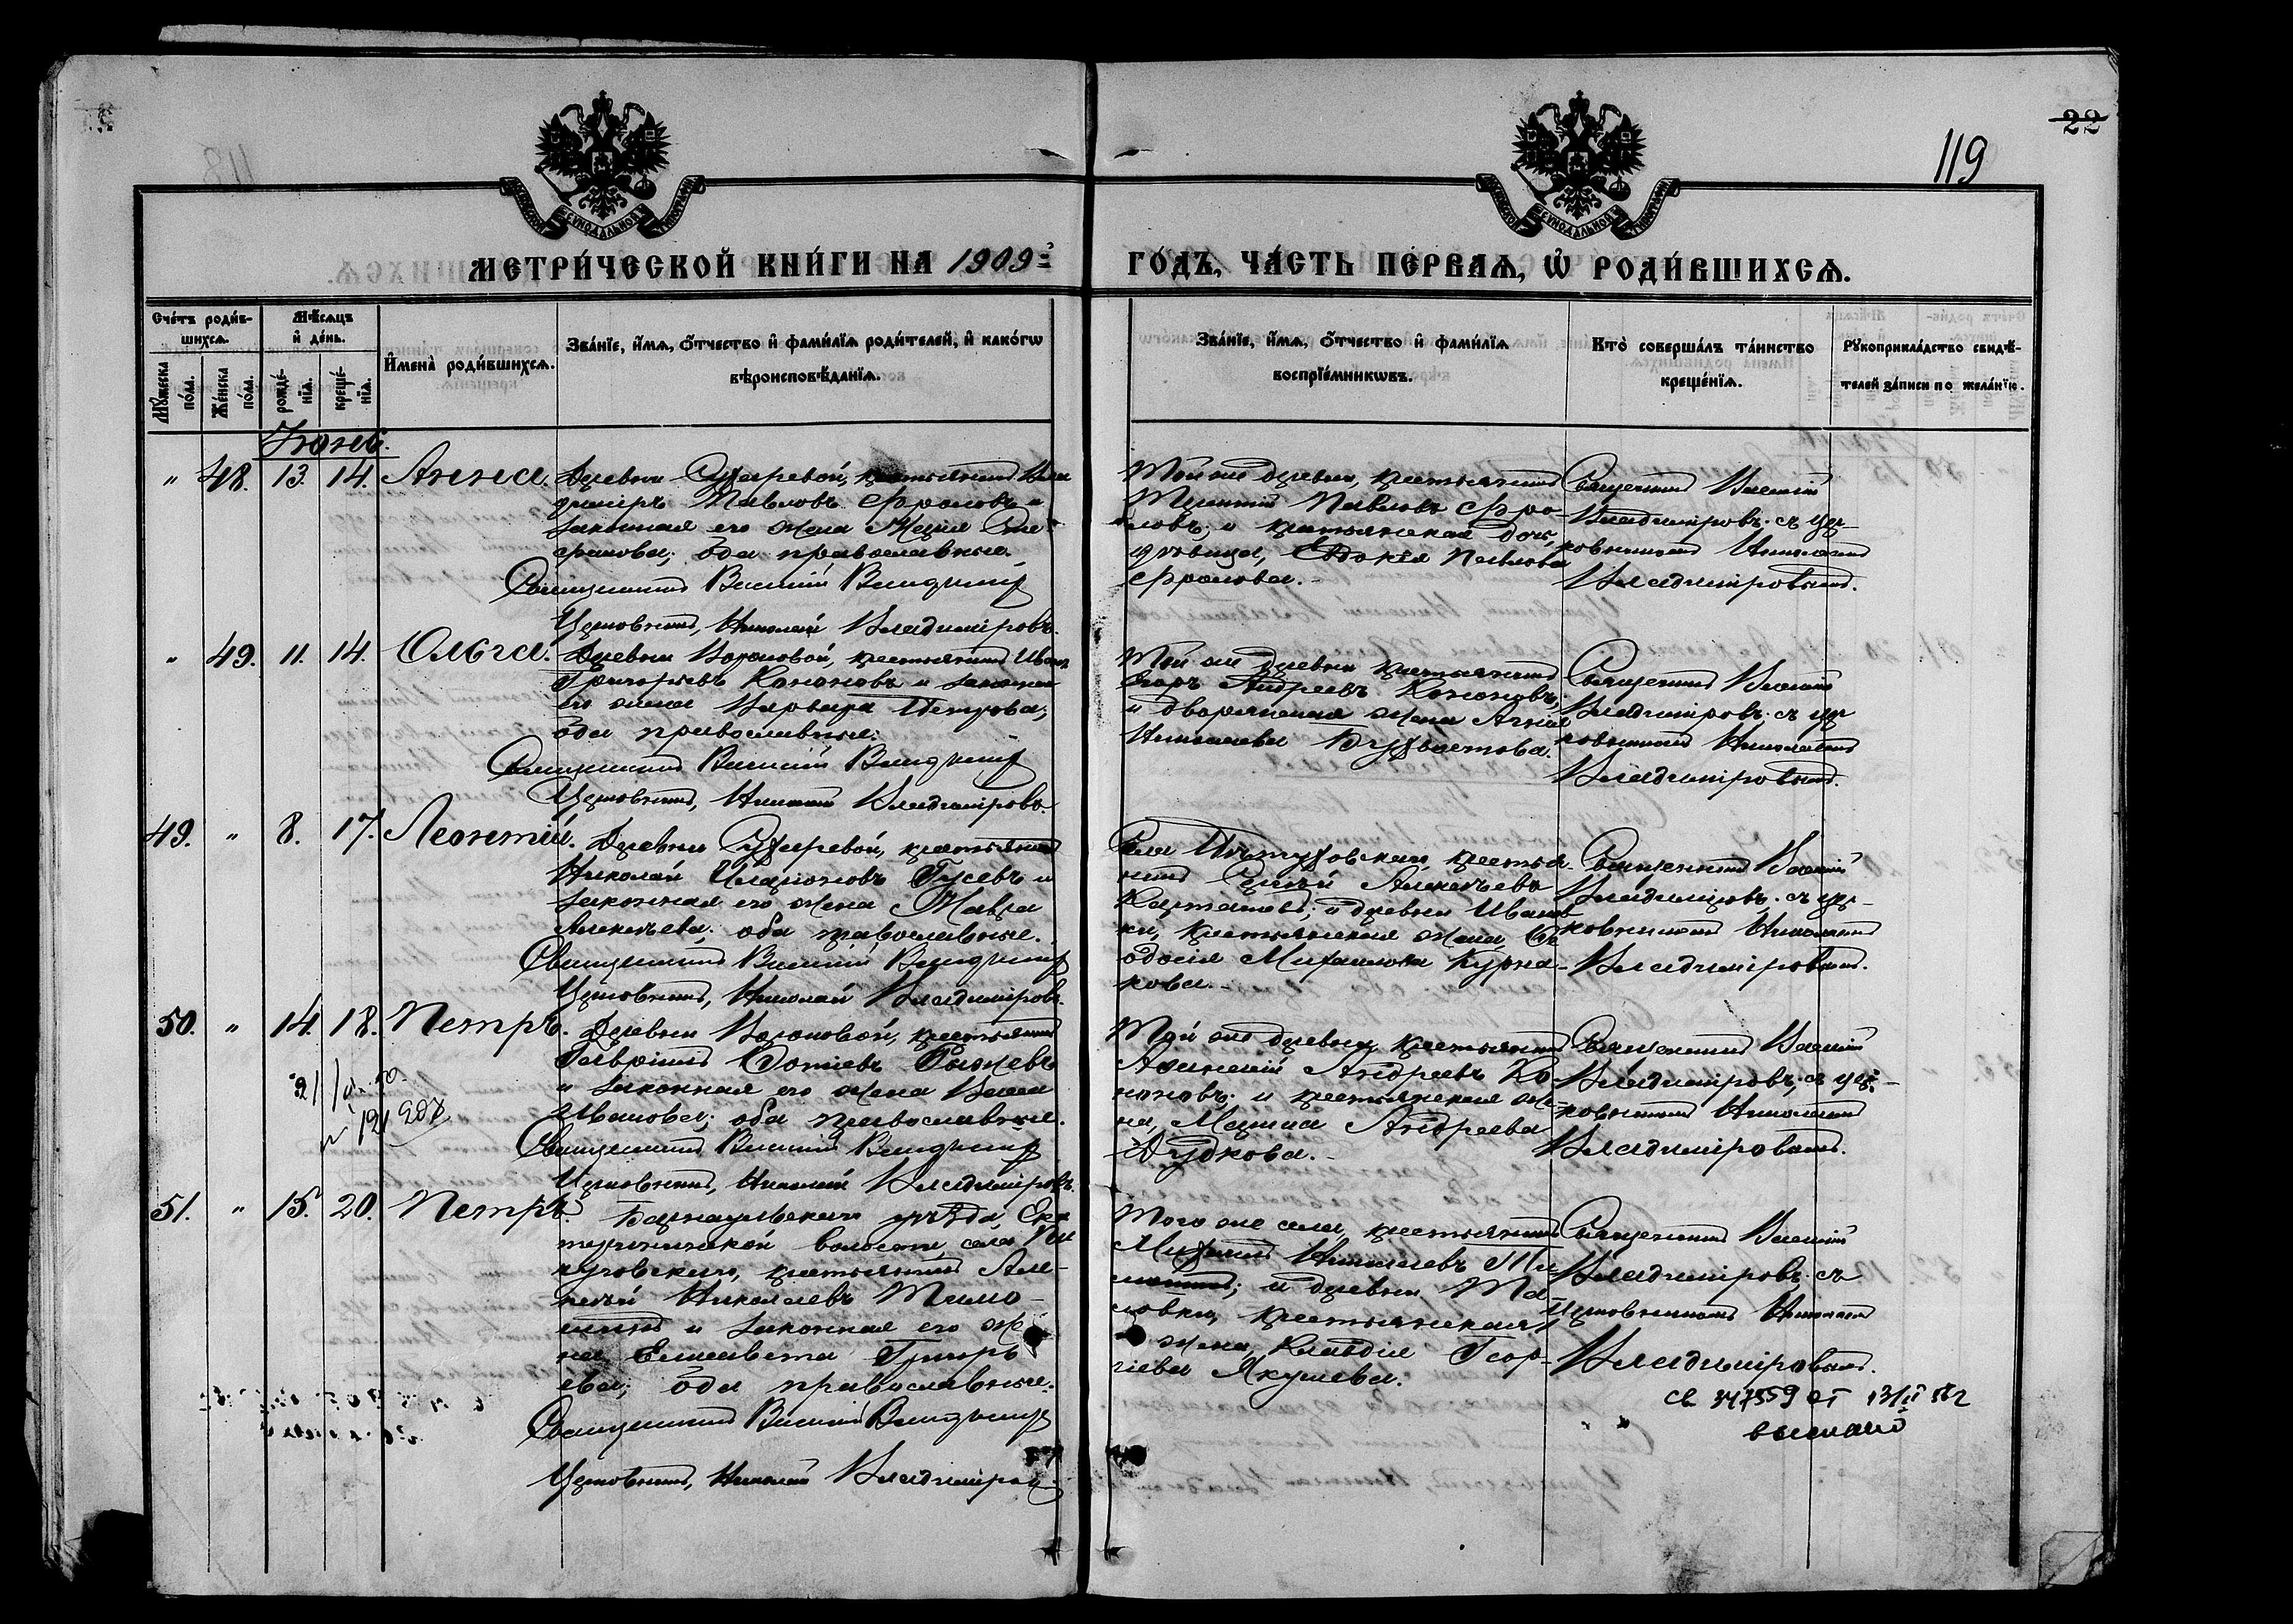 22
119
МЕТРИ́ЧЕСКОЙ КНИ́ГИ НА 1909й
ГО́ДЪ, ЧА́СТЬ ПЕ́РВАѦ, Ѽ РОДИ́ВШИХСѦ.
Сче́тъ роди́в-
шихсѧ.
Мꙋжеска по́ла.
Же́нска по́ла.
Мѣ́сѧцъ
и҆ де́нь.
рожде́-
нїѧ.
креще́-
нїѧ.
И҆мена̀ роди́вшихсѧ.
Зва́нїе, и҆́мѧ, ѻ҆́тчество и҆ фами́лїѧ роди́телей, и҆ како́гѡ
вѣроисповѣ́данїѧ.
Зва́нїе, и҆́мѧ, ѻ҆́тчество и҆ фами́лїѧ
воспрїе́мникѡвъ.
Кто̀ соверша́лъ та́инство
креще́нїѧ.
Рꙋкоприкла́дство свидѣ́-
телей за́писи по жела́нїю.
Іюнь.
" 48. 13. 14. Анна.
Деревни Сухаревой, крестьянинъ Вла
димиръ Павловъ Фроловъ и
законная его жена Марія
оба православные.
Священникъ Василій Владиміровъ
Церковникъ, Николай Владиміровъ.
Той же деревни, крестьянинъ
Павловъ Фро-
ловъ; и крестьянская дочь,
дѣвица, Евдокія Павлова
Фролова.
Священникъ Василій
Владиміровъ съ цер-
ковникомъ Николаемъ
Владиміровымъ.
" 49. 11. 14. Ольга.
Деревни Вороновой, крестьянинъ Иванъ
Григорьевъ Кононовъ и законная
его жена Варвара Петрова;
оба православные.
Священникъ Василій Владиміровъ
Церковникъ, Николай Владиміровъ.
Той же деревни крестьянинъ
Егоръ Андреевъ Кононовъ;
и дворянская жена Анна
Николаева
Священникъ Василій
Владиміровъ съ цер
ковникомъ Николаемъ
Владиміровымъ.
49. " 8. 17. Леонтій.
Деревни Сухаревой, крестьянинъ
Николай Иларіоновъ Гусевъ и
законная его жена Мавра
Алексѣева; оба православные.
Священникъ Василій Владиміровъ
Церковникъ, Николай Владиміровъ.
Села Пѣтуховскаго, крестья
нинъ Алексѣевъ
и деревни Иванов
ки, крестьянская жена, Ѳе
одосія Михаилова Курна-
кова.
Священникъ Василій
Владиміровъ съ цер-
ковникомъ Николаемъ
Владиміровымъ.
50. " 14. 18. Петръ.
№ 121
Деревни Вороновой, крестьянинъ
Гавріилъ Фотіевъ
и законная его жена Васса
Иванова; оба православные.
Священникъ Василій Владиміровъ
Церковникъ, Николай Владиміровъ.
Той же деревни, крестьянинъ
Аѳанасій Андреевъ Ко-
ноновъ; и крестьянская же-
на, Марина Андреева
Дудкова.
Священникъ Василій
Владиміровъ, съ цер-
ковникомъ Николаемъ
Владиміровымъ.
51. " 15. 20. Петръ.
Барнаульскаго уѣзда Ека
терининской волости, села
крестьянинъ Але-
ксѣй Николаевъ Тимо-
и законная его же
на Елисавета Григорь
ева; оба православные.
Священникъ Василій Владиміровъ
Церковникъ, Николай Владиміровъ.
Того же села, крестьянинъ
Михаилъ Николаевъ Ти-
и деревни Ма-
крестьянская
жена, Клавдія Геор-
гіева Якушева.
Священникъ Василій
Владиміровъ съ
Церковникомъ Николаемъ
Владиміровымъ.
Св 347559 от 13/II 52
выслано